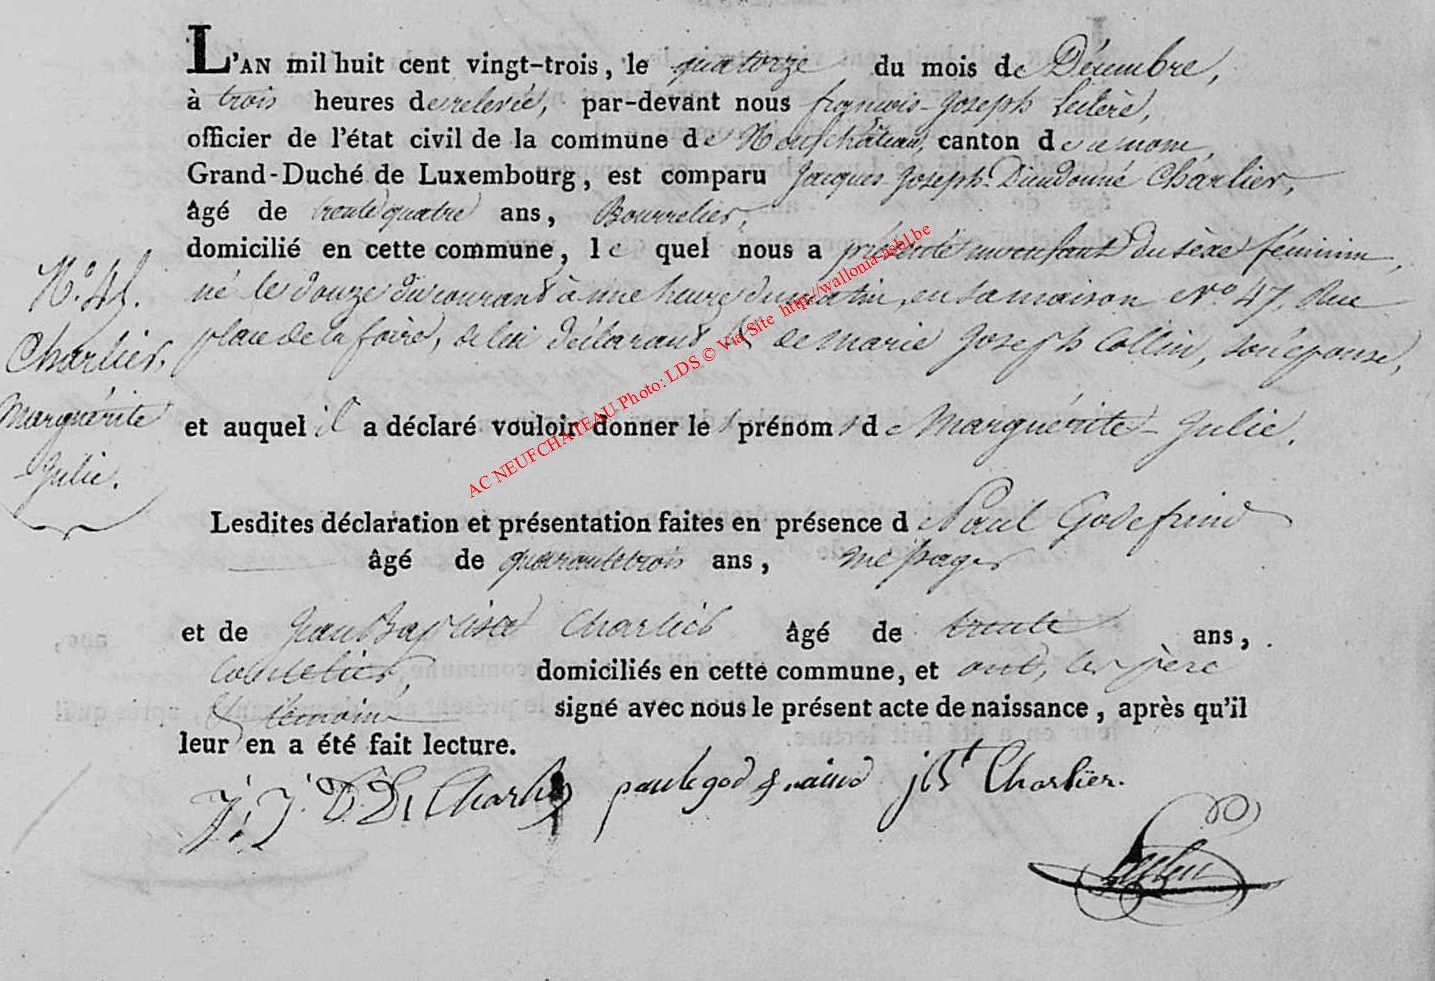 L'AN mil huit cent vingt-trois, le quatorze du mois de Décembre,
à trois heures de relevée, par-devant nous françois-Joseph Leclère,
officier de l'état civil de la commune de Neufchâteau, canton de ce nom,
Grand-Duché de Luxembourg, est comparu Jacques-Joseph-Dieudonné Charlier,
âgé de trente quatre ans, Bourrelier,
domicilié en cette commune, le quel nous a présenté un enfant du sexe féminin,
né le douze du courant à une heure du matin, en sa maison N.º 47, Rue
place de la foire, de lui déclarant & de Marie Joseph Collin, son épouse,
N.º 41.
Charlier,
Marguérite
-Julie.
et auquel il a déclaré vouloir donner les prénoms de Marguérite-Julie.
Lesdites déclaration et présentation faites en présence de Paul Godefrind
âgé de quarante trois ans, messager
et de Jean Baptiste Charlier âgé de trente ans,
domiciliés en cette commune, et ont, les père
& témoins signé avec nous le présent acte de naissance, après qu'il
leur en a été fait lecture.
J. J. D. D. Charlier j Bt Charlier.
AC NEUFCHATEAU Photo: LDS © Via Site http://wallonia-asbl.be